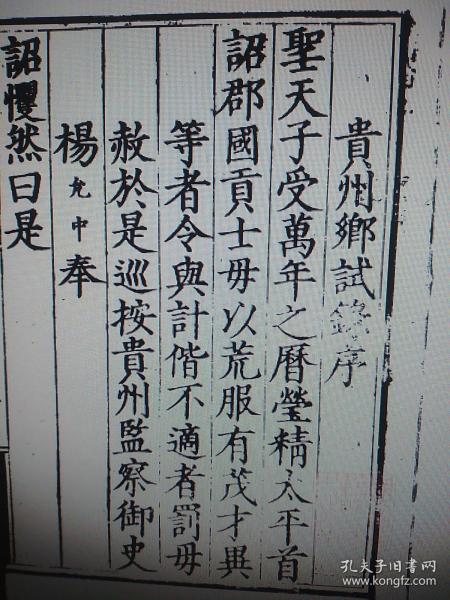 貴州鄉試錄序
聖天子受萬年之曆瑩精太平首
詔郡國貢士毋以荒服有茂才異
等者令與計偕不適者罰毋
赦於是巡按貴州監察御史
楊允中奉
詔懼然曰是
孔夫子旧书网
www.kongfz.com